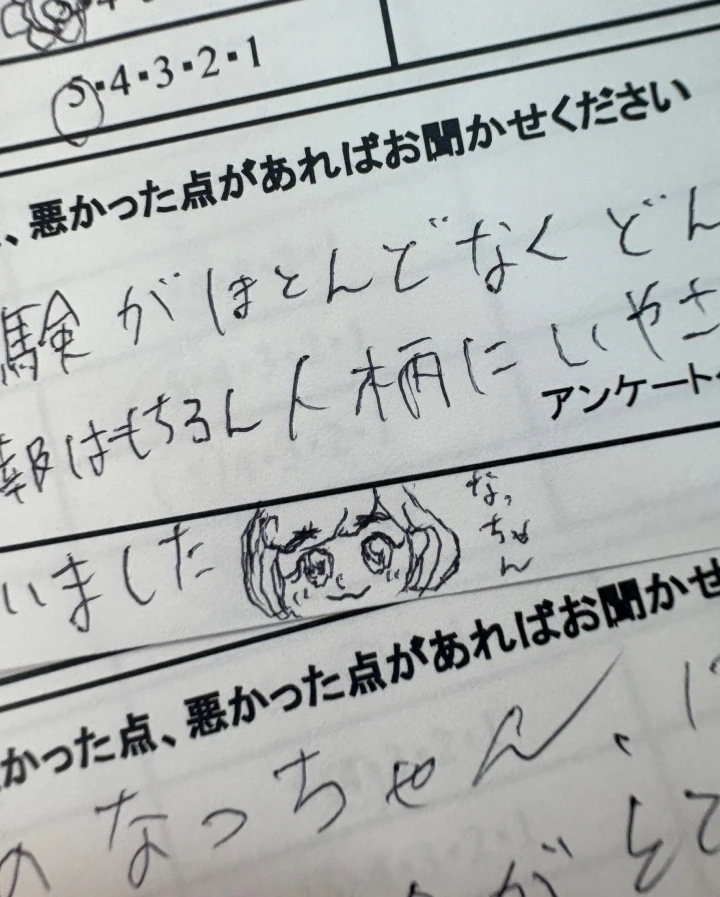 5・4・3・2・1
、悪かった点があればお聞かせください
験がほとんどでなくどん
報はもちろん人柄にいやさ
アンケート
いました
なっちゃん
かった点、悪かった点があればお聞かせ
のなっちゃん、
がとて